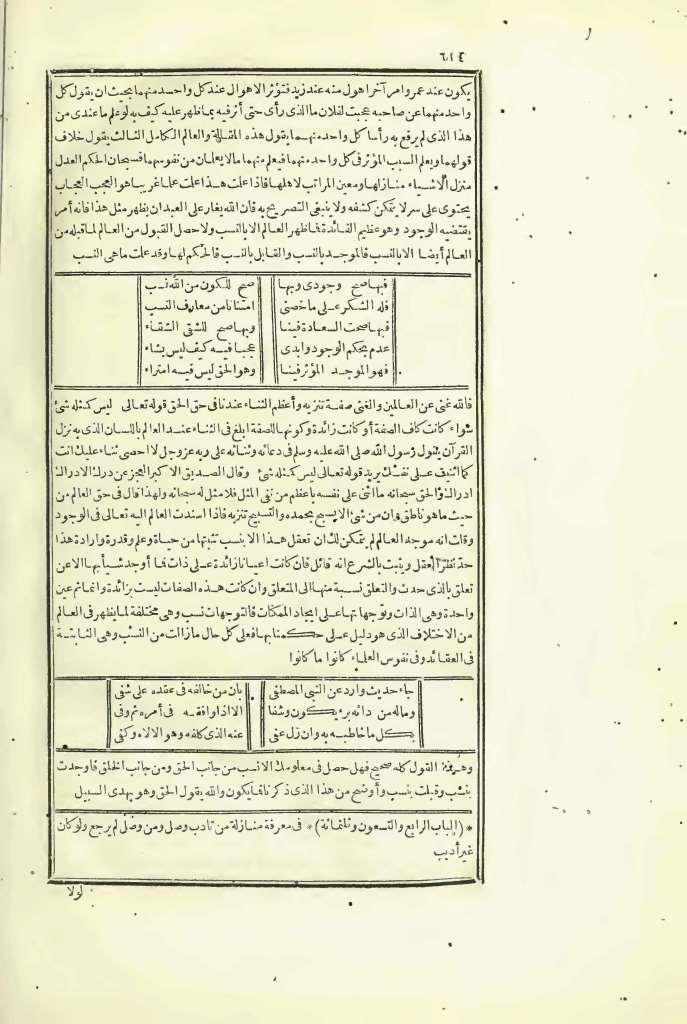 ٦١٤
يكون عند عمر وامر آخر اهول منه عند زيد فتؤثر الاهوال عند كل واحد منهما بحيث ان يقول كل
واحد منهما عن صاحبه عجبت لفلان ما الذى رأى حتى أثر فيه بما ظهر عليه كيف به لو علم ما عندى من
هذا الذى لم يرفع به رأسا كل واحد منهما يقول هذه المقالة والعالم الكامل الثالث يقول خلاف
قولهما ويعلم السبب المؤثر فى كل واحد منهما فيعلم منهما ما لا يعلمان من نفوسهما فسبحان الحكم العدل
منزل الاشياء منازلها ومعين المراتب لاهلها فاذا علمت هذا علمت علما غريبا هو العجب العجاب
يحتوى على سر لا يتمكن كشفه ولا ينبغى التصريح به فان الله يغار على العبد ان يظهر مثل هذا فانه أمر
يقتضيه الوجود وهو عظيم الفائدة فما ظهر العالم الا بالنسب ولا حصل القبول من العالم لما قبله من
العالم أيضا الا بالنسب فالموجد بالنسب والقابل بالنسب فالحكم لها وقد علمت ما هى النسب
فبها صح وجودى وبها صح للكون من الله نسب
فله الشكر على ما خصنى امتنانا من معارف النسب
فبها صحت السعادة فينا وبها صح للشقى الشقاء
عدم يحكم الوجود وابدى عجبا فيه كيف ليس يشاء
فهو الموجد المؤثر فينا وهو الحق ليس فيه امتراء
فالله غنى عن العالمين والغنى صفة تنزيه وأعظم الثناء عندنا فى حق الحق قوله تعالى ليس كمثله شئ
سواء كانت كاف الصفة أو كانت زائدة وكونها للصفة ابلغ فى الثناء عند العالم باللسان الذى به نزل
القرآن يقول رسول الله صلى الله عليه وسلم فى دعائه وثنائه على ربه عز وجل لا احصى ثناء عليك انت
كما اثنيت على نفسك يريد قوله تعالى ليس كمثله شئ وقال الصديق الاكبر العجز عن درك الادراك
ادراك فالحق سبحانه ما اثنى على نفسه باعظم من نفى المثل فلا مثل له سبحانه ولهذا قال فى حق العالم من
حيث ما هو ناطق وان من شئ الا يسبح بحمده والتسبيح تنزيه فاذا اسندت العالم اليه تعالى فى الوجود
وقلت انه موجد العالم لم يتمكن لك ان تعقل هذا الا بنسب تثبتها من حياة وعلم وقدرة وارادة هذا
حد نظر العقل ويثبت بالشرع انه قائل فان كانت اعيانا زائدة على ذات فما أوجد شيأ بها الا عن
تعلق بالذى حدث والتعلق نسبة منها الى المتعلق وان كانت هذه الصفات ليست بزائدة وانما ثم عين
واحدة وهى الذات وتوجهاتها على ايجاد الممكنات فالتوجهات نسب وهى مختلفة لما يظهر فى العالم
من الاختلاف الذى هو دليل على حكمنا بها فعلى كل حال ما زالت من النسب وهى الثابتة
فى العقائد وفى نفوس العلماء كانوا ما كانوا
جاء حديث وارد عن النبى المصطفى بان من خالفه فى عقده على شفى
وماله من دائه برء يكون وشفا الا اذا وافقه فى أمره ثم وفى
بكل ما خاطبه به وان زل عفى عنه الذى كلفه وهو الاله وكفى
وهذه القول كله صحيح فهل حصل فى معلومك الا نسب من جانب الحق ومن جانب الخلق فاوجدت
بنسب وقبلت بنسب وأوضح من هذا الذى ذكرناه فما يكون والله يقول الحق وهو يهدى السبيل
* (الباب الرابع والتسعون وثلثمائة) * فى معرفة منازلة من تادب وصل ومن وصل لم يرجع ولو كان
غير أديب
لولا